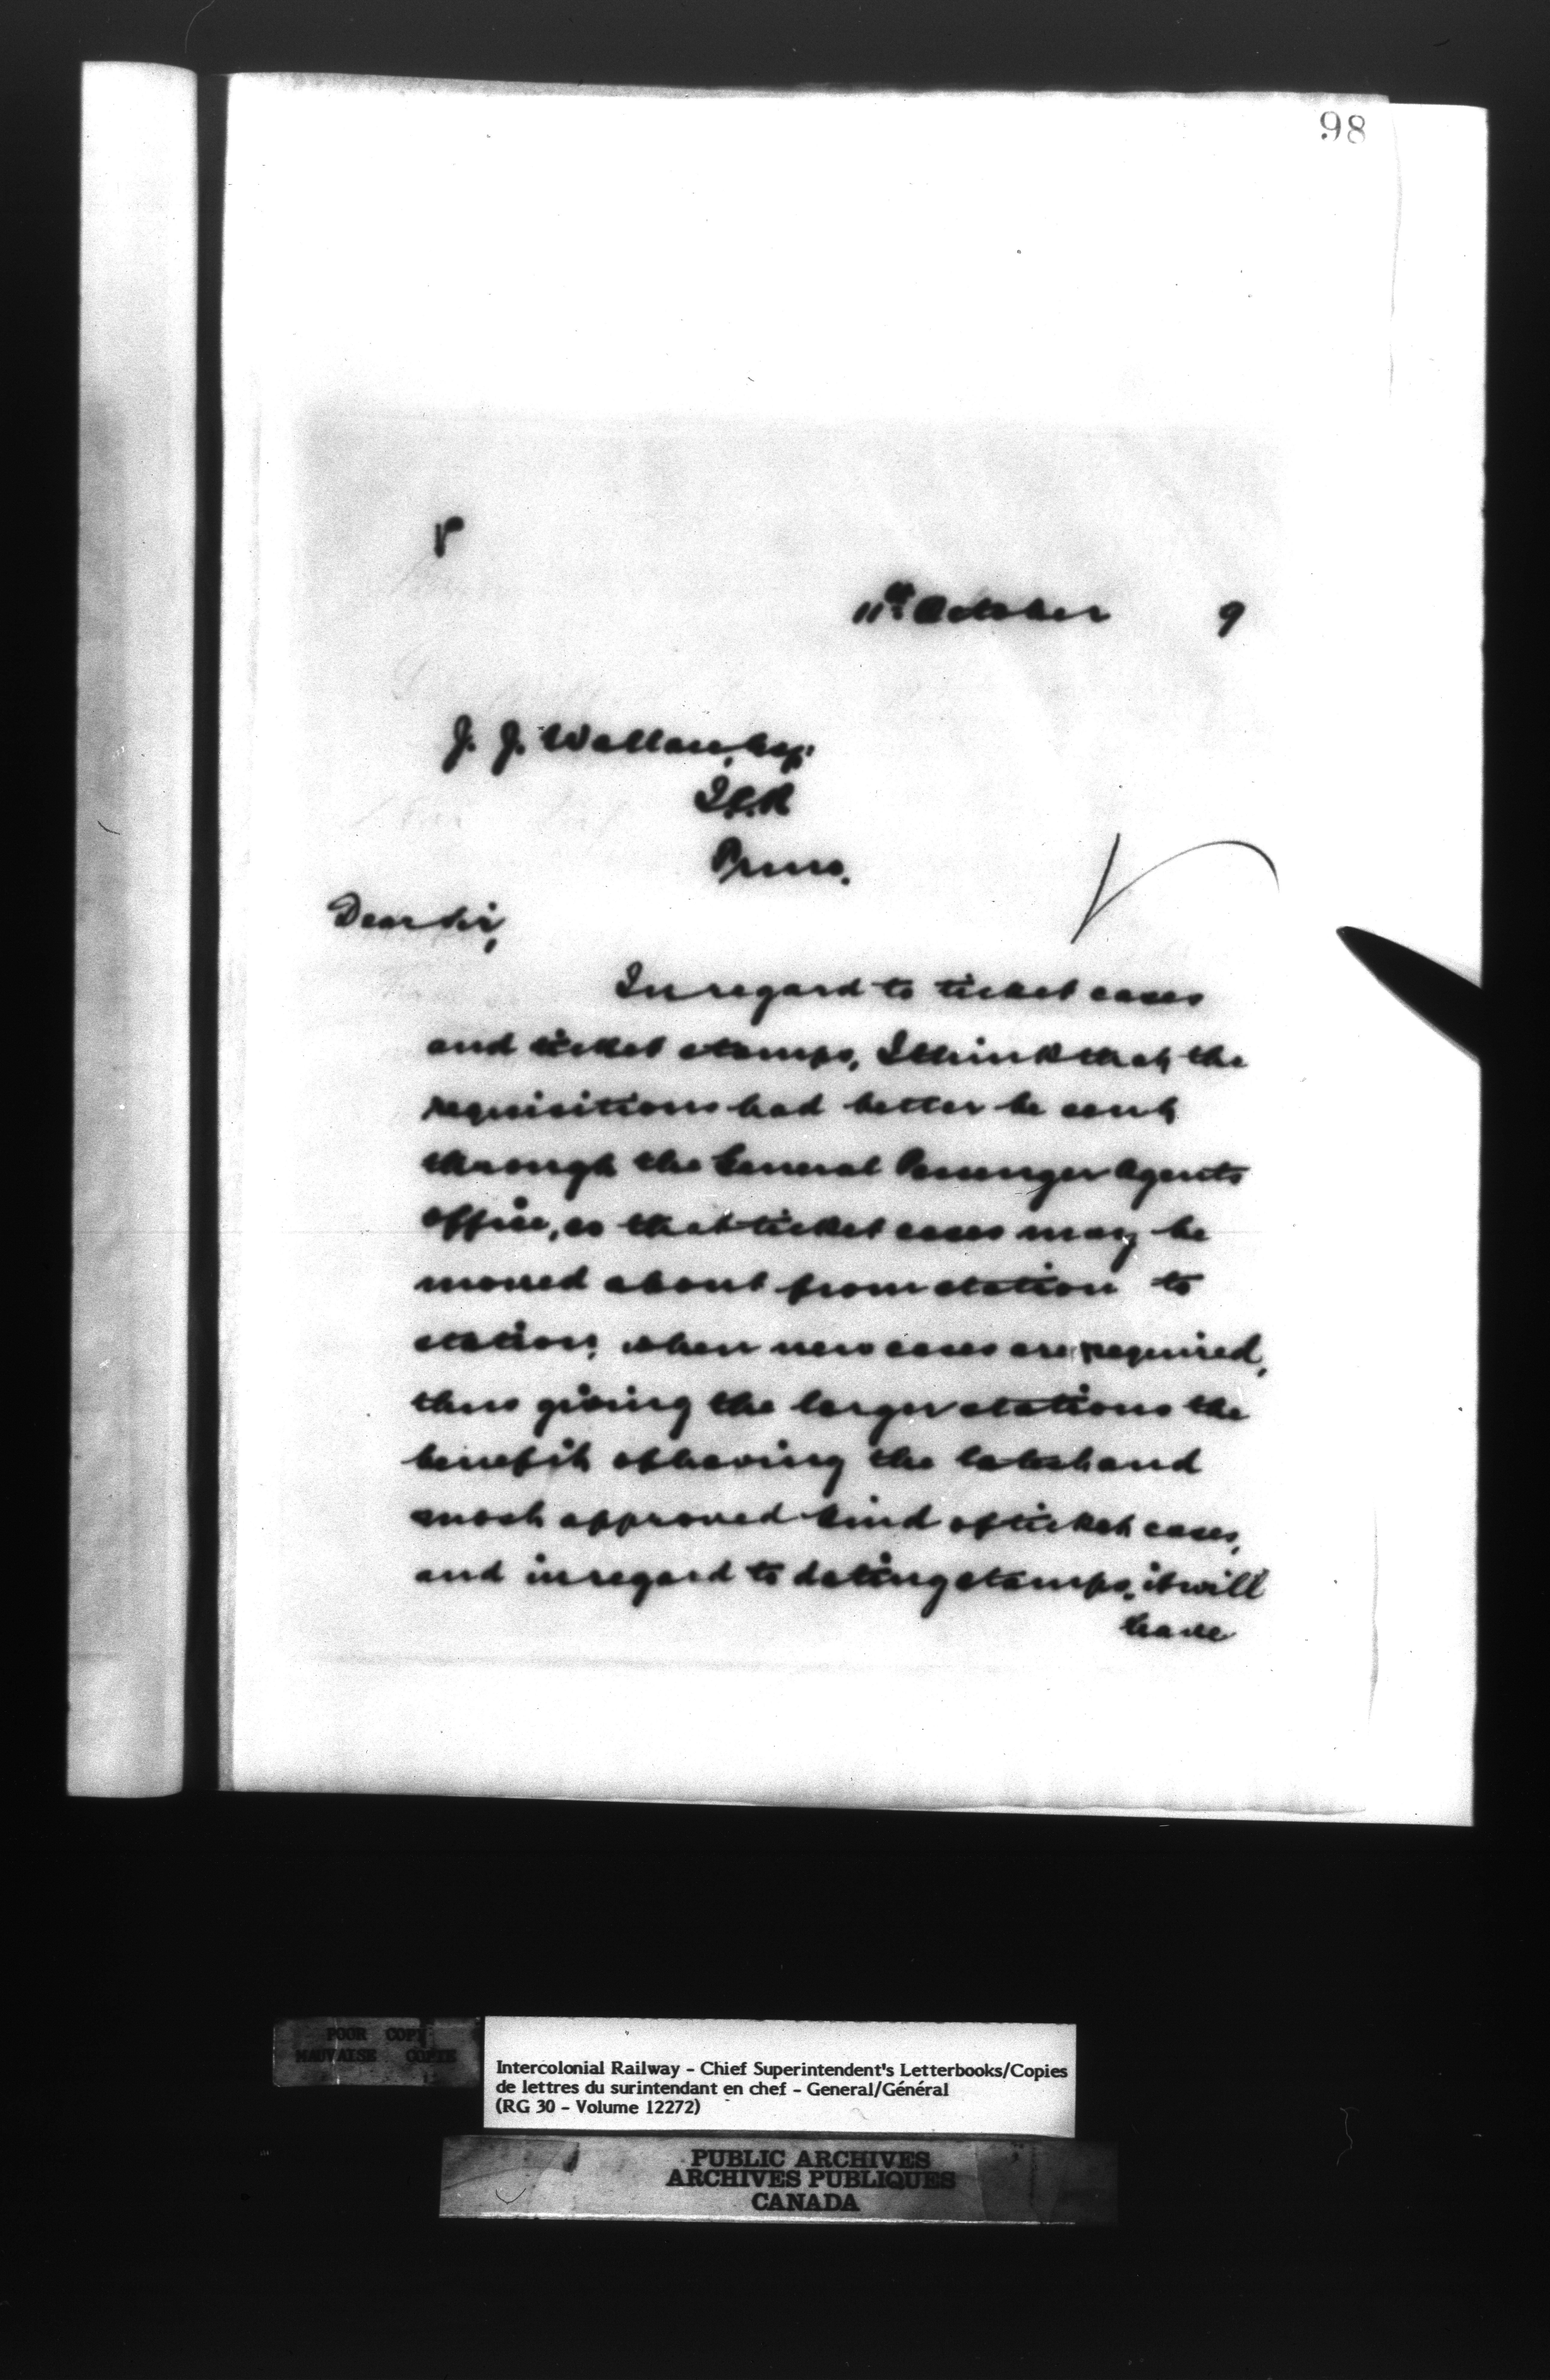 98
11th October 9
J. J. Wallace, Esq:
I.C.R
Dear Sir,
In regard to ticket cases
and ticket stamps, I think that the
requisitions had better be sent
through the General Passenger Agents
office, as that ticket cases may be
moved about from station to
station, when new cases are required,
thus giving the larger stations the
benefit of having the latest and
most approved kind of ticket cases,
and in regard to dating stamps, it will
leave
POOR COPY
MAUVAISE COPIE
Intercolonial Railway - Chief Superintendent's Letterbooks/Copies
de lettres du surintendant en chef - General/Général
(RG 30 - Volume 12272)
PUBLIC ARCHIVES
ARCHIVES PUBLIQUES
CANADA